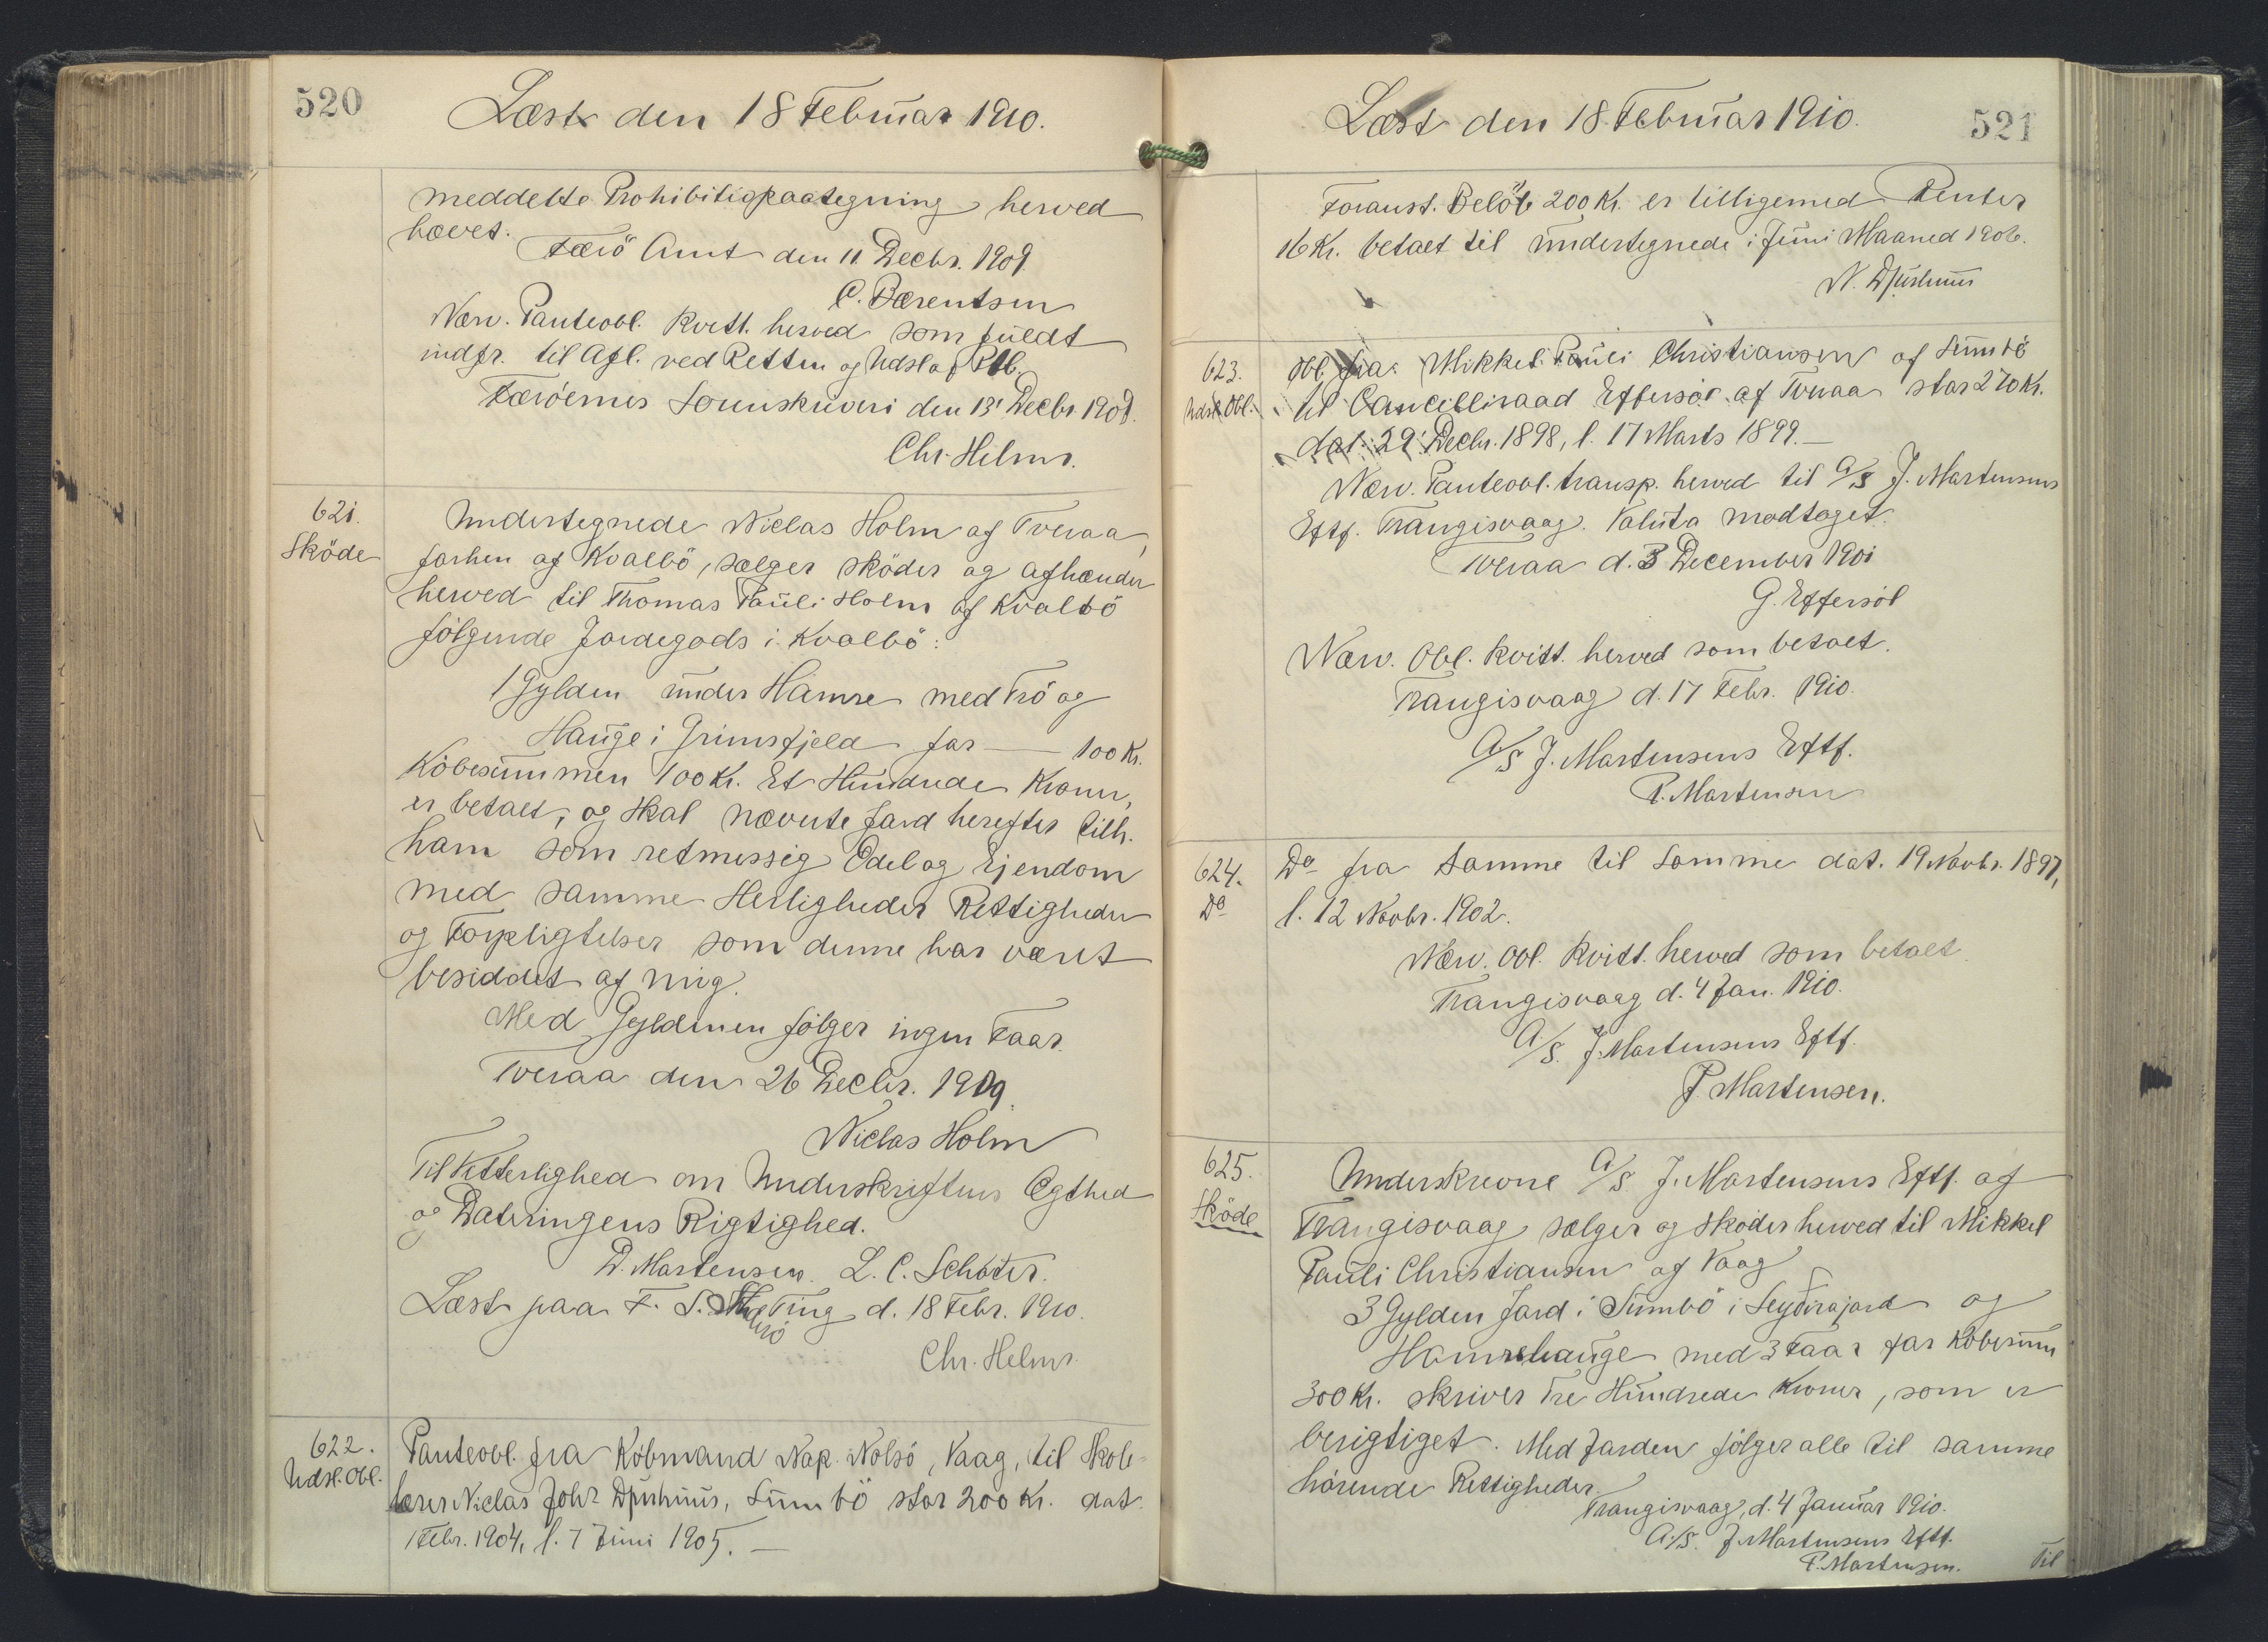 520
Læst den 18 Februar 1910.
meddelte Prohibitiopaategning herved
hævet.
Færö Amt den 11 Decbr. 1909.
C. Bærentsen
Nærv. Panteobl. kvitt. herved som fuldt
indfr. til Afl. ved Retten og Udsl. af Ptb.
Færöernes Sorenskriveri den 13' Decbr 1909.
Chr. Helms.
621.
Sköde
Undertegnede Niclas Holm af Tveraa,
forhen af Kvalbö, sælger sköder og afhænder
herved til Thomas Pauli Holm af Kvalbö
fölgende Jordegods i Kvalbö:
1 Gylden under Hamre med Trö og
Hauge i Grimsfjeld for — 100 Kr.
Köbesummen 100 Kr. Et Hundrede Kroner,
er betalt, og skal nævnte Jord herefter tilh.
ham som retmessig Odel og Ejendom
med samme Herligheder Rettigheder
og Forpligtelser som denne har været
besiddet af mig.
Med Gyldenen fölger ingen Faar.
Tveraa den 26 Decbr. 1909.
Niclas Holm
Til Vitterlighed om Underskriftens Ægthed
og Dateringens Rigtighed.
D. Martensen. L. C. Schöter.
Læst paa F. S. Ting d. 18 Febr. 1910.
Chr. Helms.
622.
Udsl. Obl.
Panteobl. fra Köbmand Nap. Nolsö, Vaag, til Skole-
lærer Niclas Johs Djurhuus, Sumbö stor 200 Kr. dat.
1 Febr. 1904, l. 7 Juni 1905. —
Læst den 18 Februar 1910.
521
Foranst. Belöb 200 Kr. er tilligemed Renter
16 Kr. betalt til undertegnede i Juni Maaned 1906.
N. Djurhuus
623.
Udsl. Obl.
Obl. fra Mikkel Pauli Christiansen af Sumbö
til Cancelliraad Effersöe af Tveraa stor 270 Kr.
dat. 29' Decbr. 1898, l. 17 Marts 1899. —
Nærv. Panteobl. transp. herved til A/S J. Mortensens
Eftf. Trangisvaag. Valuta modtaget.
Tveraa d. 3 December 1901
G. Effersöe
Nærv. Obl. kvitt. herved som betalt.
Trangisvaag d. 17 Febr. 1910.
A/S J. Mortensens Eftf.
P. Mortensen
624.
Do
Do fra Samme til Samme dat. 19 Novbr. 1897,
l. 12 Novbr. 1902.
Nærv. Obl. kvitt. herved som betalt.
Trangisvaag d. 4 Jan. 1910.
A/S. J. Mortensens Eftf.
P. Mortensen.
625.
Sköde
Underskrevne A/S. J. Mortensens Eftf. af
Trangisvaag sælger og sköder herved til Mikkel
Pauli Christiansen af Vaag
3 Gylden Jord i Sumbö i Leyðirajord og
Hamrehauge med 3 Faar for Köbesum
300 Kr. skriver Tre Hundrede Kroner, som er
berigtiget. Med Jorden fölger alle til samme
hörende Rettigheder.
Trangisvaag, d. 4 Januar 1910.
A/S. J. Mortensens Eftf.
P. Mortensen.
Til